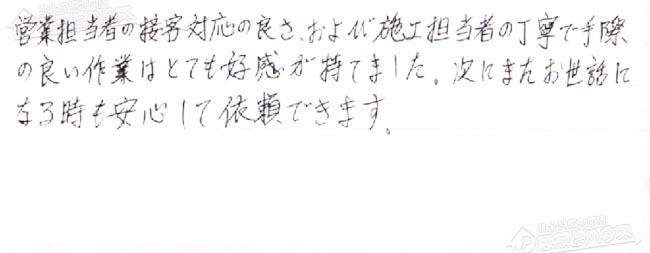 営業担当者の接客対応の良さ、および施工担当者の丁寧で手際
の良い作業はとても好感が持てました。次にまたお世話に
なる時も安心して依頼できます。